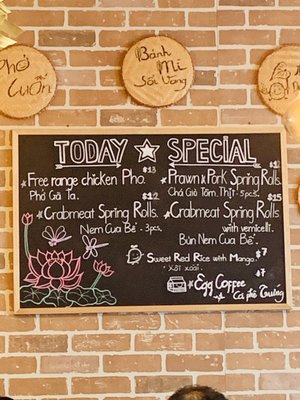 Phở
Cuốn
Bánh
Mì
Sốt Vang
TODAY SPECIAL
$13
Free range chicken Pho.
Phở Gà Ta.
$12
Crabmeat Spring Rolls.
Nem Cua Bể - 3pcs.
Prawn & Pork Spring Rolls
Chả Giò Tôm Thịt - 5pcs
$15
Crabmeat Spring Rolls
with vermicelli.
Bún Nem Cua Bể.
Sweet Red Rice with Mango. $7
Xôi xoài.
$7
Egg Coffee
Cà phê Trứng